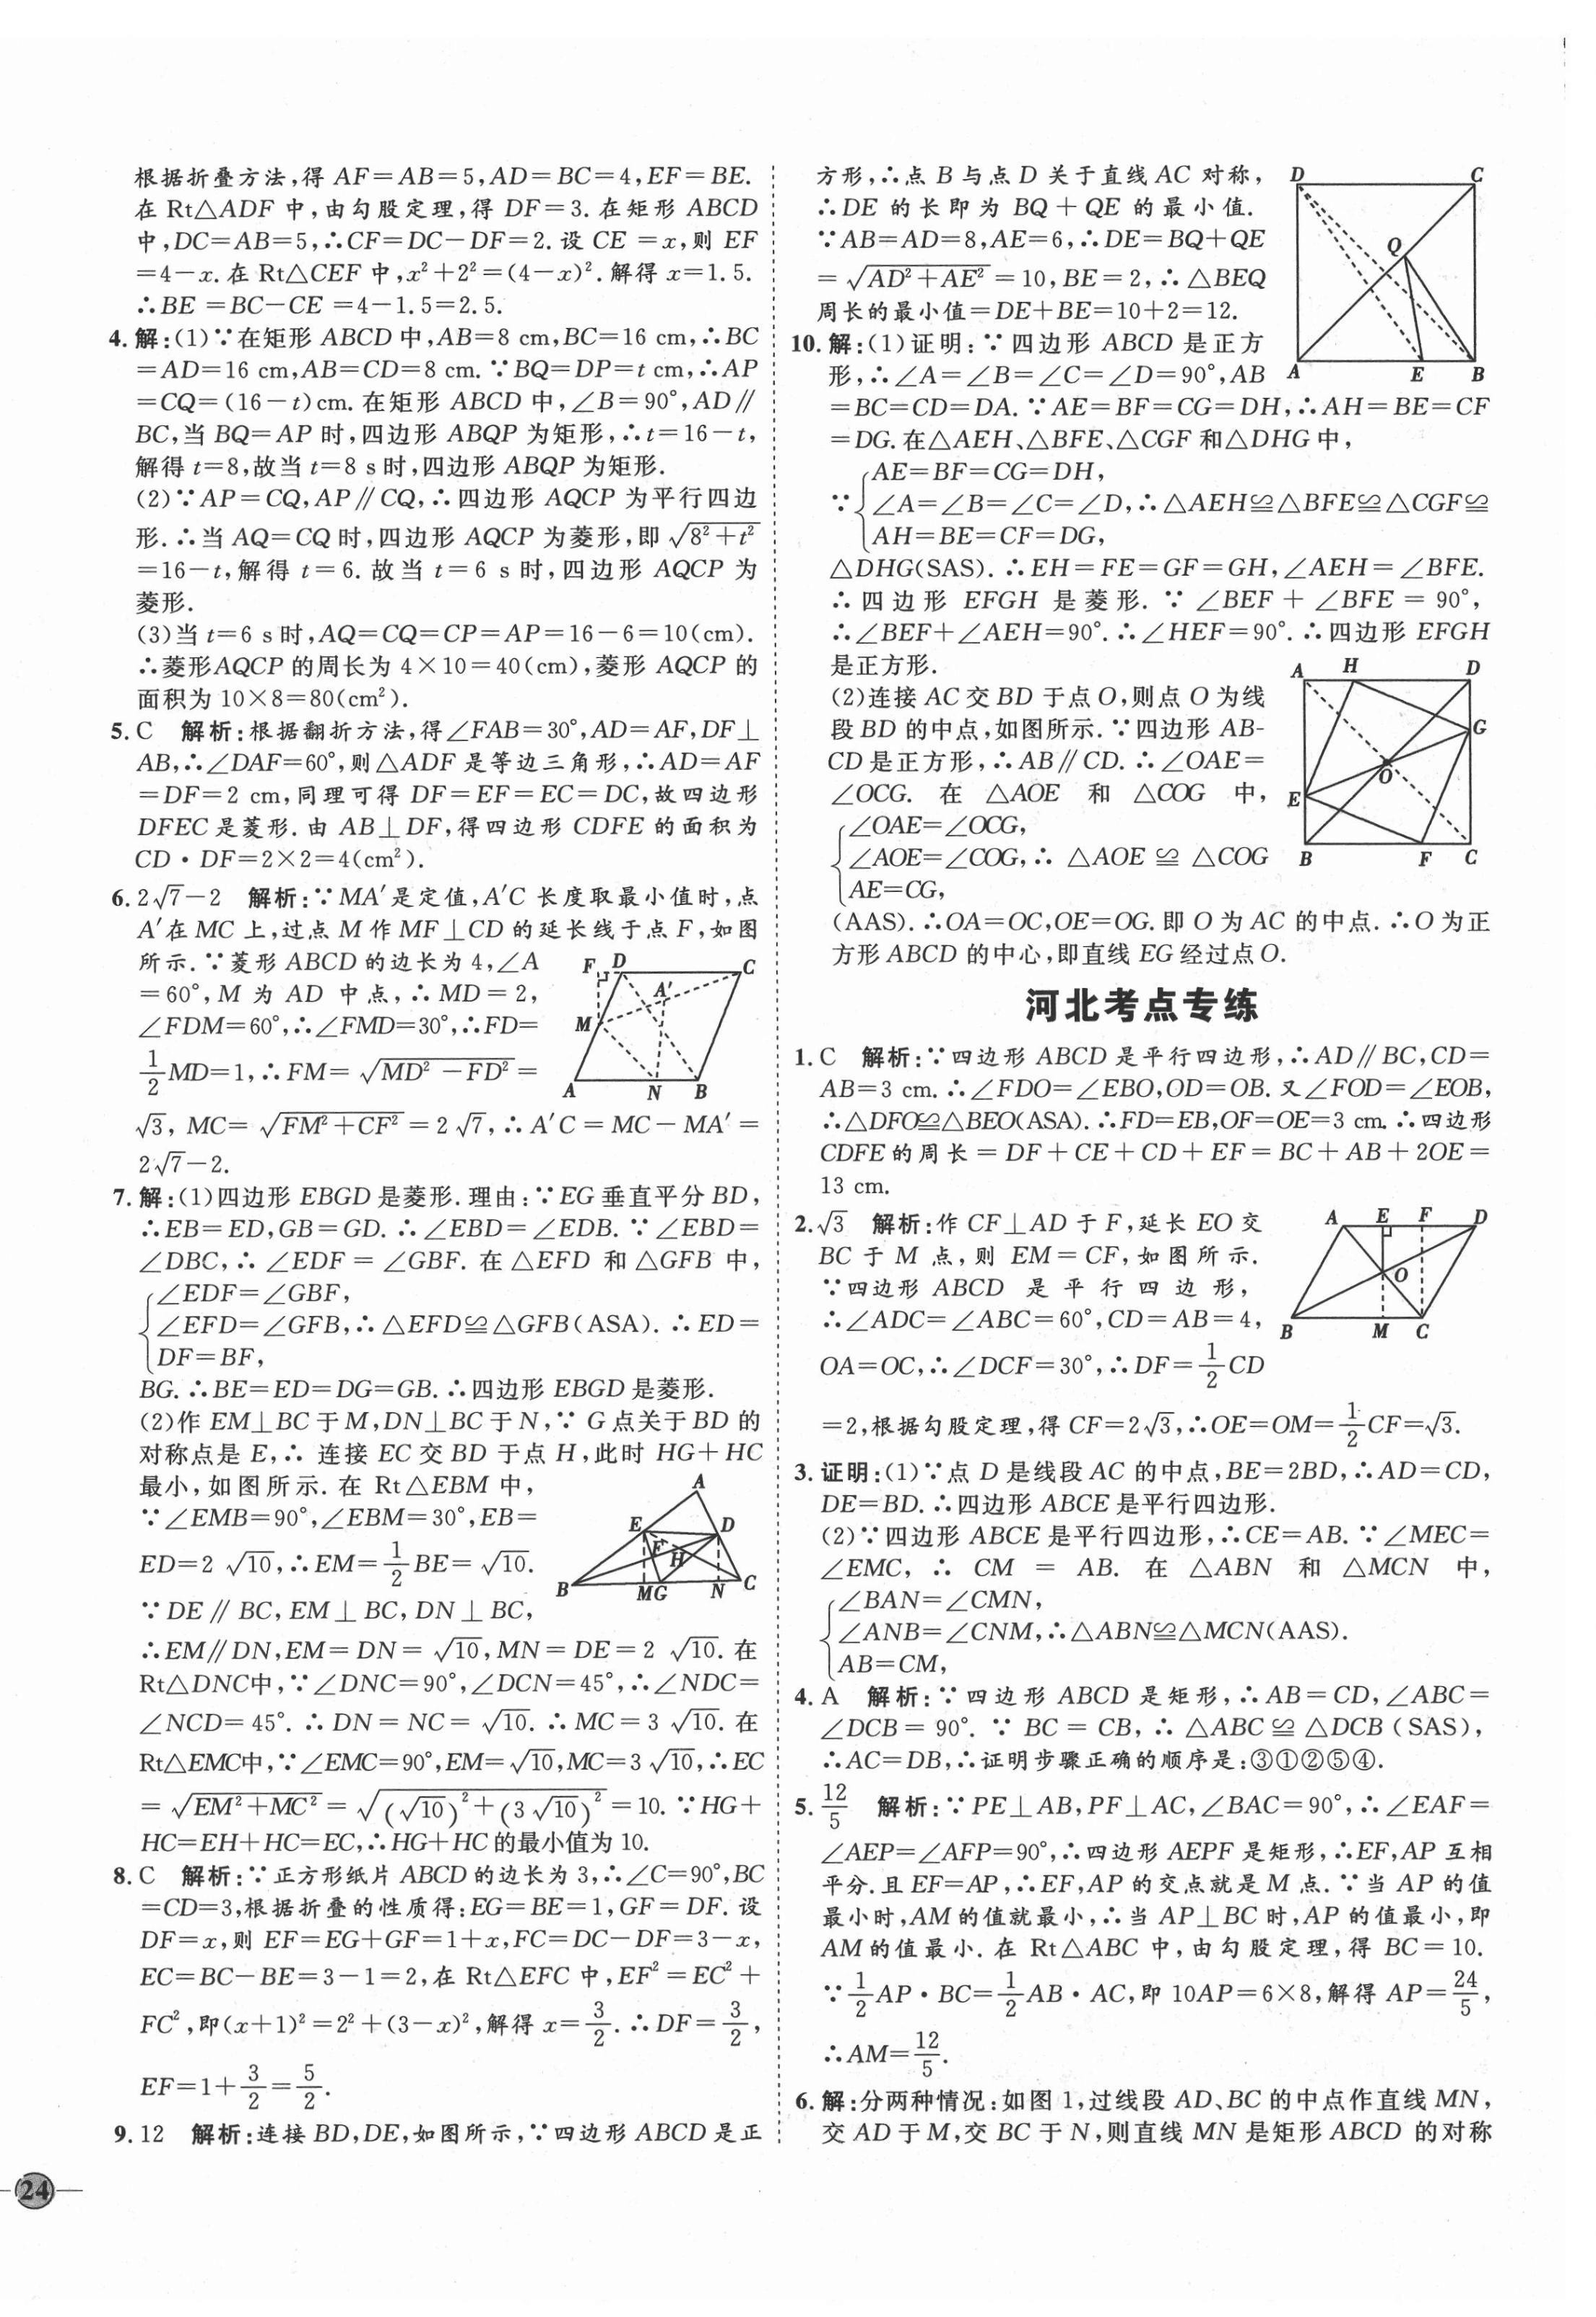 根据折叠方法,得 AF=AB=5,AD=BC=4,EF=BE.
在 Rt△ADF 中,由勾股定理,得 DF=3.在矩形 ABCD
中,DC=AB=5,∴CF=DC-DF=2.设 CE =x,则 EF
=4-x.在 Rt△CEF 中,x²+2²=(4-x)².解得 x=1.5.
∴BE =BC-CE =4-1.5=2.5.
4.解:(1)∵在矩形 ABCD 中,AB=8 cm,BC=16 cm,∴BC
=AD=16 cm,AB=CD=8 cm.∵BQ=DP=t cm,∴AP
=CQ=(16-t)cm.在矩形 ABCD 中,∠B=90°,AD∥
BC,当 BQ=AP 时,四边形 ABQP 为矩形,∴t=16-t,
解得 t=8,故当 t=8 s 时,四边形 ABQP 为矩形.
(2)∵AP=CQ,AP∥CQ,∴四边形 AQCP 为平行四边
形.∴当 AQ=CQ 时,四边形 AQCP 为菱形,即 √(8²+t²)
=16-t,解得 t=6.故当 t=6 s 时,四边形 AQCP 为
菱形.
(3)当 t=6 s 时,AQ=CQ=CP=AP=16-6=10(cm).
∴菱形AQCP 的周长为 4×10=40(cm),菱形 AQCP 的
面积为 10×8=80(cm²).
5.C 解析:根据翻折方法,得∠FAB=30°,AD=AF,DF⊥
AB,∴∠DAF=60°,则△ADF 是等边三角形,∴AD=AF
=DF=2 cm,同理可得 DF=EF=EC=DC,故四边形
DFEC 是菱形.由 AB⊥DF,得四边形 CDFE 的面积为
CD·DF=2×2=4(cm²).
6.2√7-2 解析:∵MA′是定值,A′C 长度取最小值时,点
A′在 MC 上,过点 M 作 MF⊥CD 的延长线于点 F,如图
所示.∵菱形 ABCD 的边长为 4,∠A
=60°,M 为 AD 中点,∴MD=2,
∠FDM=60°,∴∠FMD=30°,∴FD=
1/2 MD=1,∴FM=√(MD²-FD²)=
√3,MC=√(FM²+CF²)=2√7,∴A′C=MC-MA′=
2√7-2.
F D C
A′
M
A N B
7.解:(1)四边形 EBGD 是菱形.理由:∵EG 垂直平分 BD,
∴EB=ED,GB=GD.∴∠EBD=∠EDB.∵∠EBD=
∠DBC,∴∠EDF=∠GBF.在△EFD 和△GFB 中,
{∠EDF=∠GBF,
∠EFD=∠GFB,∴△EFD≌△GFB(ASA).∴ED=
DF=BF,
BG.∴BE=ED=DG=GB.∴四边形 EBGD 是菱形.
(2)作 EM⊥BC 于 M,DN⊥BC 于 N,∵G 点关于 BD 的
对称点是 E,∴连接 EC 交 BD 于点 H,此时 HG+HC
最小,如图所示.在 Rt△EBM 中,
∵∠EMB=90°,∠EBM=30°,EB=
ED=2√10,∴EM=1/2 BE=√10.
∵DE∥BC,EM⊥BC,DN⊥BC,
A
E D
F H
B MG N C
∴EM∥DN,EM=DN=√10,MN=DE=2√10.在
Rt△DNC中,∵∠DNC=90°,∠DCN=45°,∴∠NDC=
∠NCD=45°.∴DN=NC=√10.∴MC=3√10.在
Rt△EMC中,∵∠EMC=90°,EM=√10,MC=3√10,∴EC
=√(EM²+MC²)=√((√10)²+(3√10)²)=10.∵HG+
HC=EH+HC=EC,∴HG+HC的最小值为 10.
8.C 解析:∵正方形纸片 ABCD 的边长为 3,∴∠C=90°,BC
=CD=3,根据折叠的性质得:EG=BE=1,GF=DF.设
DF=x,则 EF=EG+GF=1+x,FC=DC-DF=3-x,
EC=BC-BE=3-1=2,在 Rt△EFC 中,EF²=EC²+
FC²,即(x+1)²=2²+(3-x)²,解得 x=3/2.∴DF=3/2,
EF=1+3/2=5/2.
9.12 解析:连接 BD,DE,如图所示,∵四边形 ABCD 是正
24
方形,∴点 B 与点 D 关于直线 AC 对称,
∴DE 的长即为 BQ+QE 的最小值.
∵AB=AD=8,AE=6,∴DE=BQ+QE
=√(AD²+AE²)=10,BE=2,∴△BEQ
周长的最小值=DE+BE=10+2=12.
D C
Q
A E B
10.解:(1)证明:∵四边形 ABCD 是正方
形,∴∠A=∠B=∠C=∠D=90°,AB
=BC=CD=DA.∵AE=BF=CG=DH,∴AH=BE=CF
=DG.在△AEH、△BFE、△CGF 和△DHG 中,
{AE=BF=CG=DH,
∵ ∠A=∠B=∠C=∠D,∴△AEH≌△BFE≌△CGF≌
AH=BE=CF=DG,
△DHG(SAS).∴EH=FE=GF=GH,∠AEH=∠BFE.
∴四边形 EFGH 是菱形.∵∠BEF+∠BFE=90°,
∴∠BEF+∠AEH=90°.∴∠HEF=90°.∴四边形 EFGH
是正方形.
(2)连接 AC 交 BD 于点 O,则点 O 为线
段 BD 的中点,如图所示.∵四边形 AB-
CD 是正方形,∴AB∥CD.∴∠OAE=
∠OCG.在 △AOE 和 △COG 中,
{∠OAE=∠OCG,
∠AOE=∠COG,∴△AOE≌△COG
AE=CG,
A H D
G
O
E
B F C
(AAS).∴OA=OC,OE=OG.即 O 为 AC 的中点.∴O 为正
方形 ABCD 的中心,即直线 EG 经过点 O.
河北考点专练
1.C 解析:∵四边形 ABCD 是平行四边形,∴AD∥BC,CD=
AB=3 cm.∴∠FDO=∠EBO,OD=OB.又∠FOD=∠EOB,
∴△DFO≌△BEO(ASA).∴FD=EB,OF=OE=3 cm.∴四边形
CDFE 的周长=DF+CE+CD+EF=BC+AB+2OE=
13 cm.
2.√3 解析:作 CF⊥AD 于 F,延长 EO 交
BC 于 M 点,则 EM=CF,如图所示.
∵四边形 ABCD 是平行四边形,
∴∠ADC=∠ABC=60°,CD=AB=4,
OA=OC,∴∠DCF=30°,∴DF=1/2 CD
A E F D
O
B M C
=2,根据勾股定理,得 CF=2√3,∴OE=OM=1/2 CF=√3.
3.证明:(1)∵点 D 是线段 AC 的中点,BE=2BD,∴AD=CD,
DE=BD.∴四边形 ABCE 是平行四边形.
(2)∵四边形 ABCE 是平行四边形,∴CE=AB.∵∠MEC=
∠EMC,∴CM=AB.在 △ABN 和 △MCN 中,
{∠BAN=∠CMN,
∠ANB=∠CNM,∴△ABN≌△MCN(AAS).
AB=CM,
4.A 解析:∵四边形 ABCD 是矩形,∴AB=CD,∠ABC=
∠DCB=90°.∵BC=CB,∴△ABC≌△DCB(SAS),
∴AC=DB,∴证明步骤正确的顺序是:③①②⑤④.
5.12/5 解析:∵PE⊥AB,PF⊥AC,∠BAC=90°,∴∠EAF=
∠AEP=∠AFP=90°,∴四边形 AEPF 是矩形,∴EF,AP 互相
平分.且 EF=AP,∴EF,AP 的交点就是 M 点.∵当 AP 的值
最小时,AM 的值就最小,∴当 AP⊥BC 时,AP 的值最小,即
AM 的值最小.在 Rt△ABC 中,由勾股定理,得 BC=10.
∵1/2 AP·BC=1/2 AB·AC,即 10AP=6×8,解得 AP=24/5,
∴AM=12/5.
6.解:分两种情况:如图 1,过线段 AD、BC 的中点作直线 MN,
交 AD 于 M,交 BC 于 N,则直线 MN 是矩形 ABCD 的对称